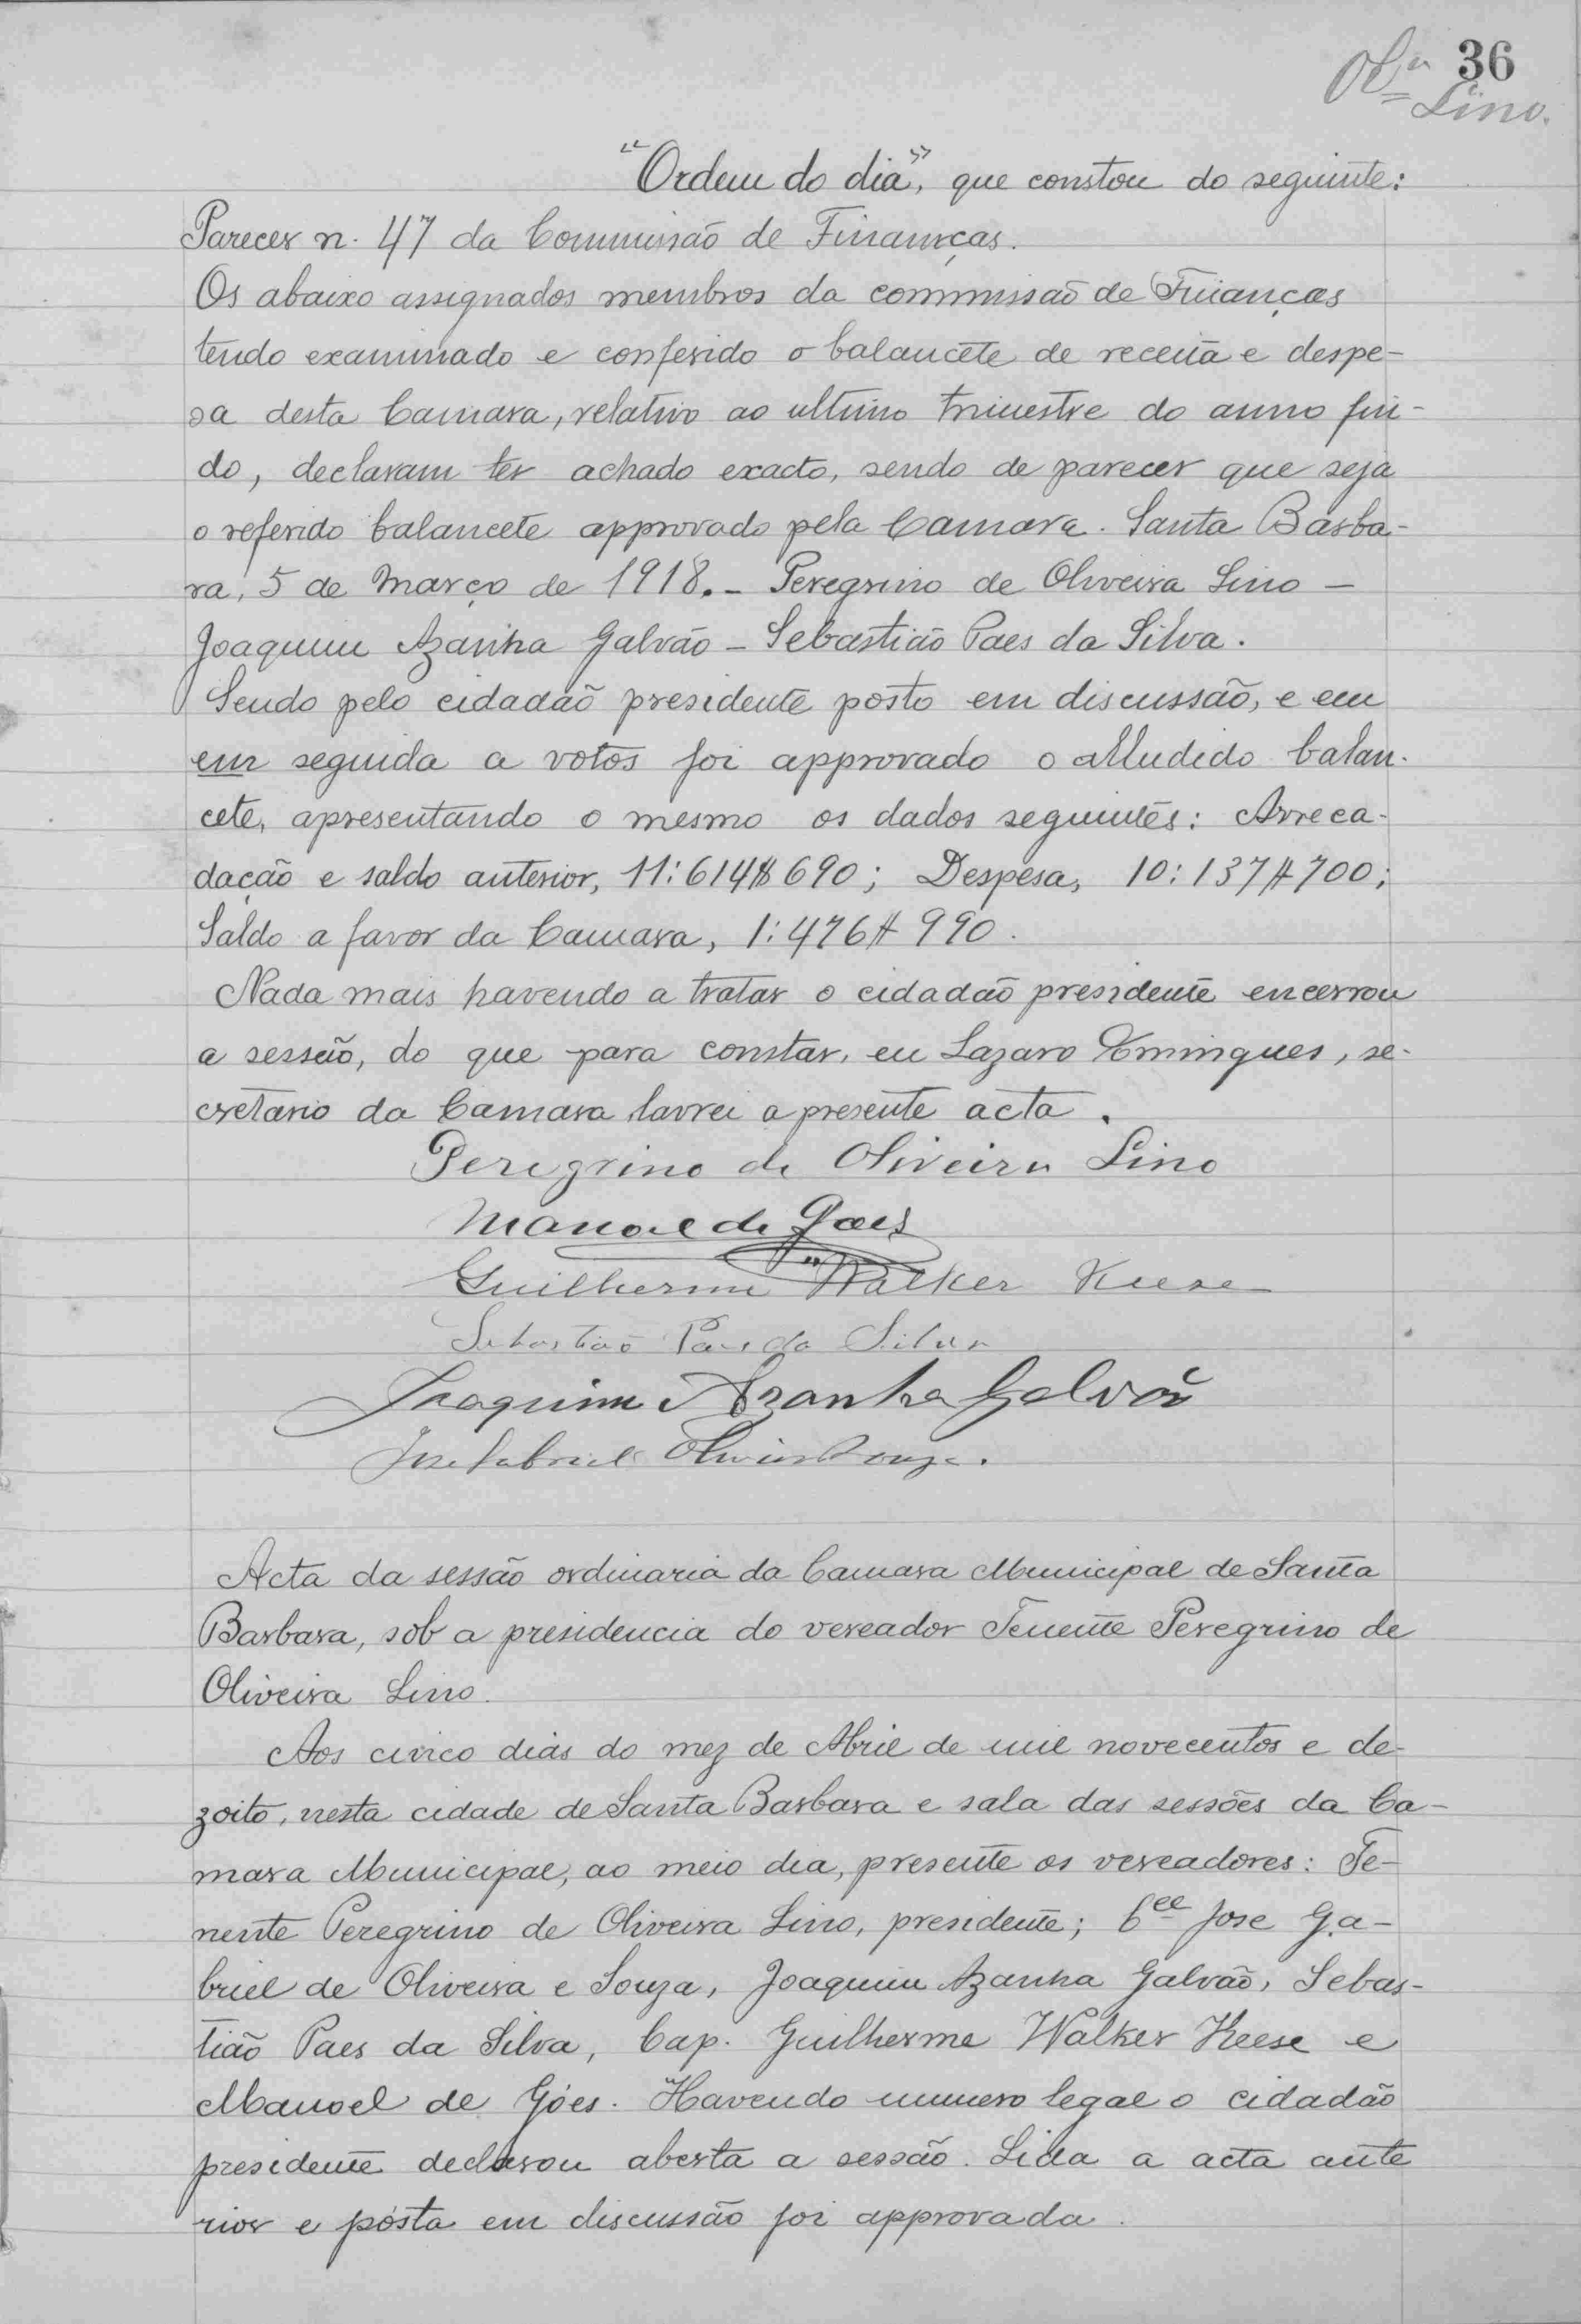 36
Olª Lino.
"Ordem do dia", que constou do seguinte:
Parecer n. 47 da Commissão de Finanças.
Os abaixo assignados membros da commissão de Finanças
tendo examinado e conferido o balancete de receita e despe-
sa desta Camara, relativo ao ultimo trimestre do anno fin-
do, declaram ter achado exacto, sendo de parecer que seja
o referido balancete approvado pela Camara. Santa Barba-
ra, 5 de Março de 1918. - Peregrino de Oliveira Lino -
Joaquim Azanha Galvão - Sebastião Paes da Silva.
Sendo pelo cidadão presidente posto em discussão, e em
em seguida a votos foi approvado o alludido balan-
cete, apresentando o mesmo os dados seguintes: Arreca-
dação e saldo anterior, 11:614$690; Despesa, 10:137$700;
Saldo a favor da Camara, 1:476$990.
Nada mais havendo a tratar o cidadão presidente encerrou
a sessão, do que para constar, eu Lazaro Domingues, se-
cretario da Camara lavrei a presente acta.
Peregrino de Oliveira Lino
Manoel de Goes
Guilherme Walker Keese
Sebastião Paes da Silva
Joaquim Azanha Galvão
José Gabriel Oliveira Souza.
Acta da sessão ordinaria da Camara Municipal de Santa
Barbara, sob a presidencia do vereador Tenente Peregrino de
Oliveira Lino.
Aos cinco dias do mez de Abril de mil novecentos e de-
zoito, nesta cidade de Santa Barbara e sala das sessões da Ca-
mara Municipal, ao meio dia, presente os vereadores: Te-
nente Peregrino de Oliveira Lino, presidente; Cel Jose Ga-
briel de Oliveira e Souza, Joaquim Azanha Galvão, Sebas-
tião Paes da Silva, Cap. Guilherme Walker Keese e
Manoel de Góes. Havendo numero legal o cidadão
presidente declarou aberta a sessão. Lida a acta ante
rior e posta em discussão foi approvada.